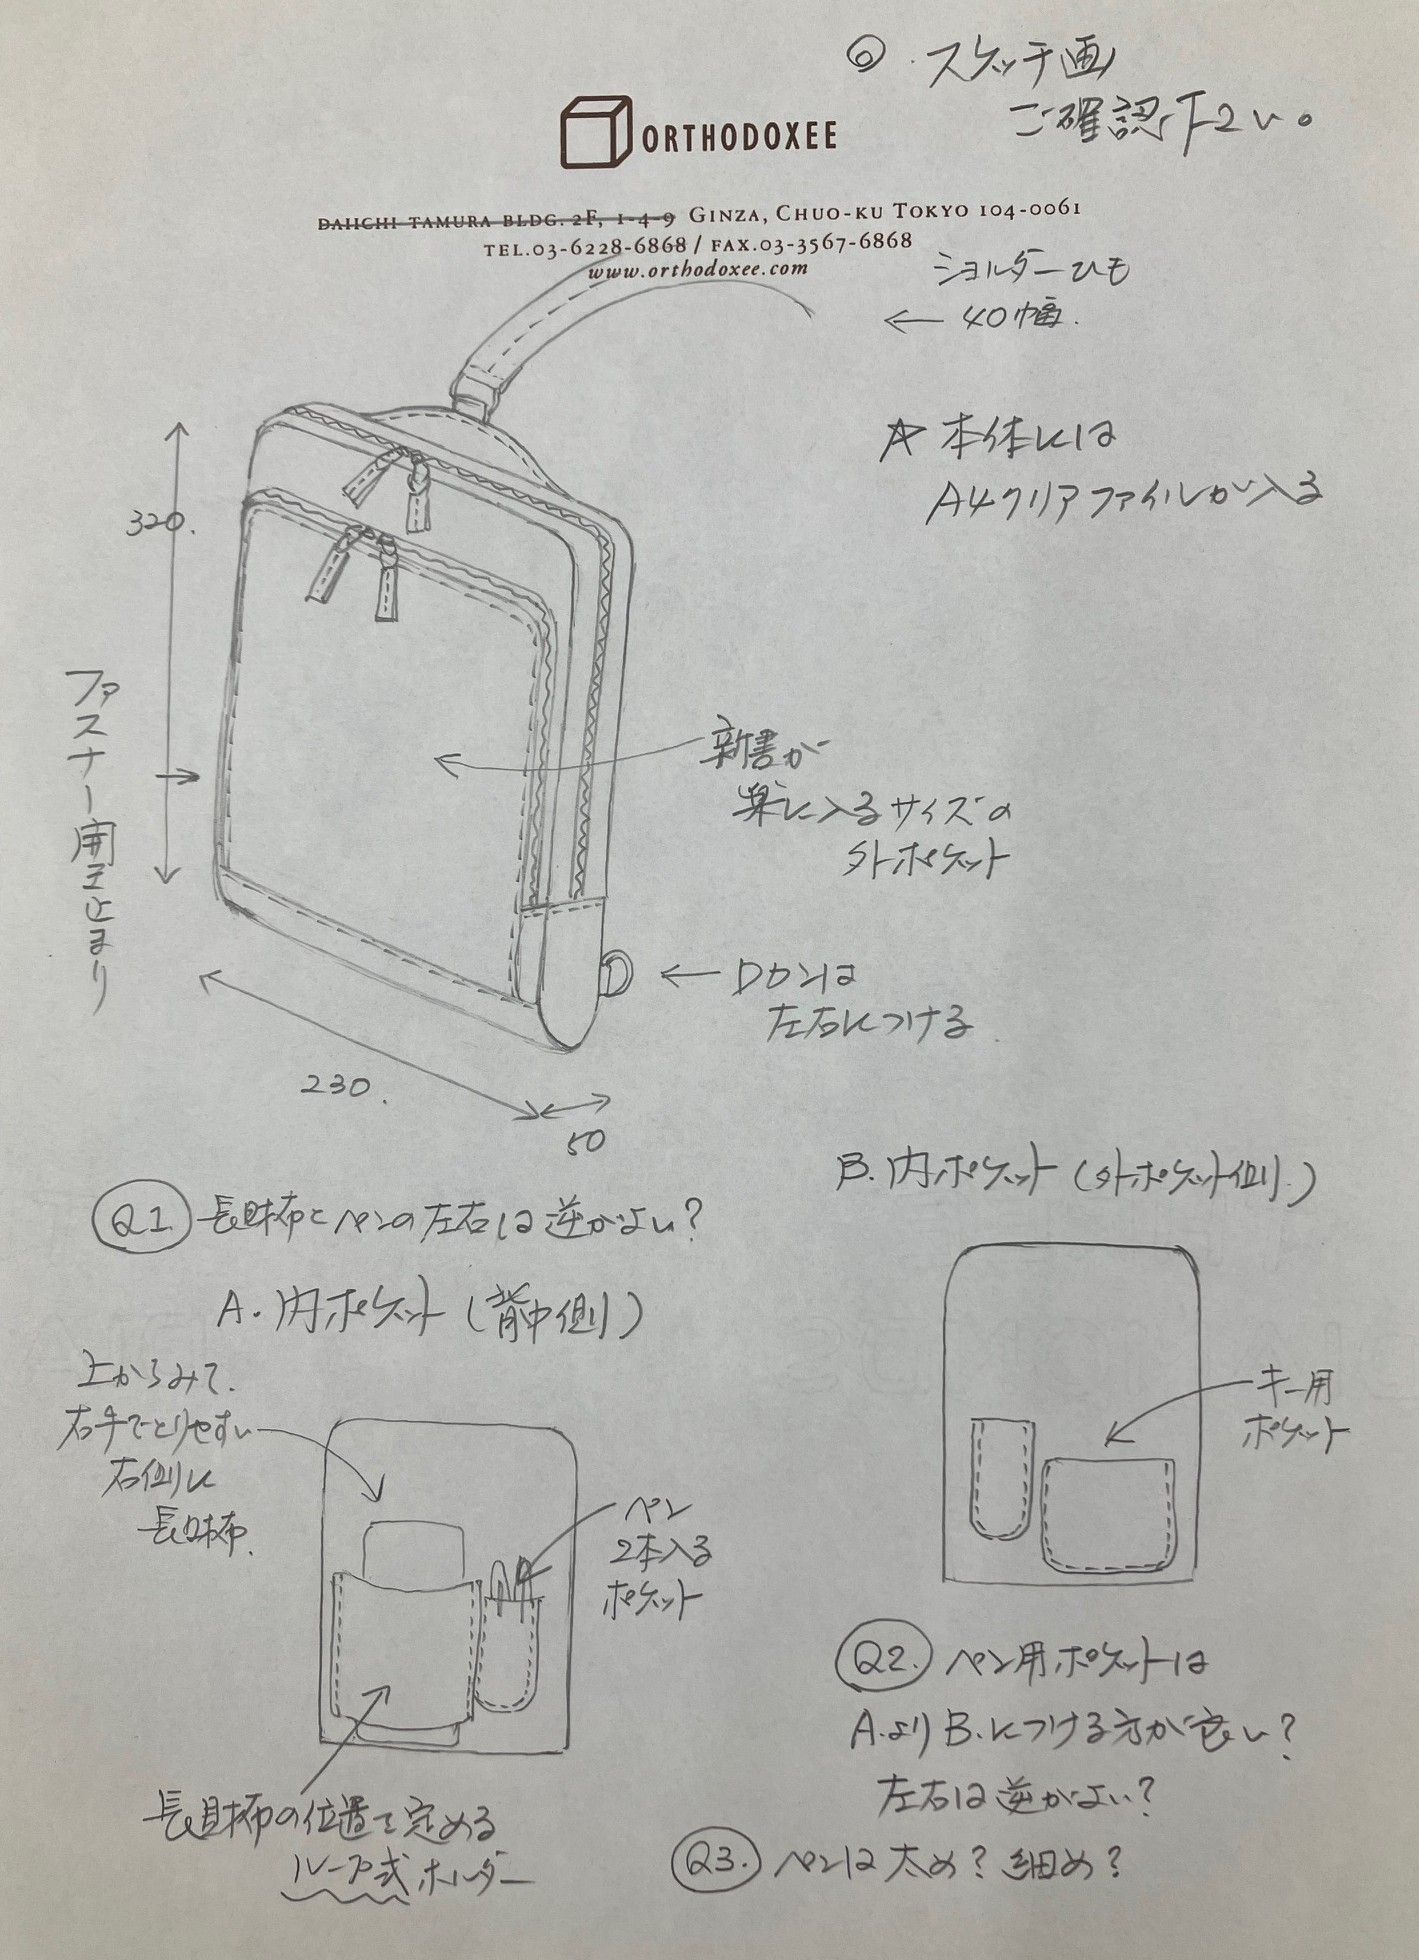 ◎.スケッチ画
ご確認下さい。
ORTHODOXEE
DAIICHI TAMURA BLDG. 2F, 1-4-9 GINZA, CHUO-KU TOKYO 104-0061
TEL.03-6228-6868 / FAX.03-3567-6868
www.orthodoxee.com
ショルダーひも
← 40幅.
☆ 本体には
A4クリアファイルが入る
320.
ファスナー開き止まり
新書が
楽に入るサイズの
外ポケット
← Dカンは
左右につける.
230.
50
Q1. 長財布とペンの左右は逆がよい?
A. 内ポケット (背中側)
上からみて.
右手でとりやすい
右側に
長財布.
ペン
2本入る
ポケット
長財布の位置を定める
ループ式ホルダー
B. 内ポケット (外ポケット側.)
キー用
ポケット
Q2. ペン用ポケットは
A.よりB.につける方が良い?
左右は逆がよい?
Q3. ペンは太め? 細め?